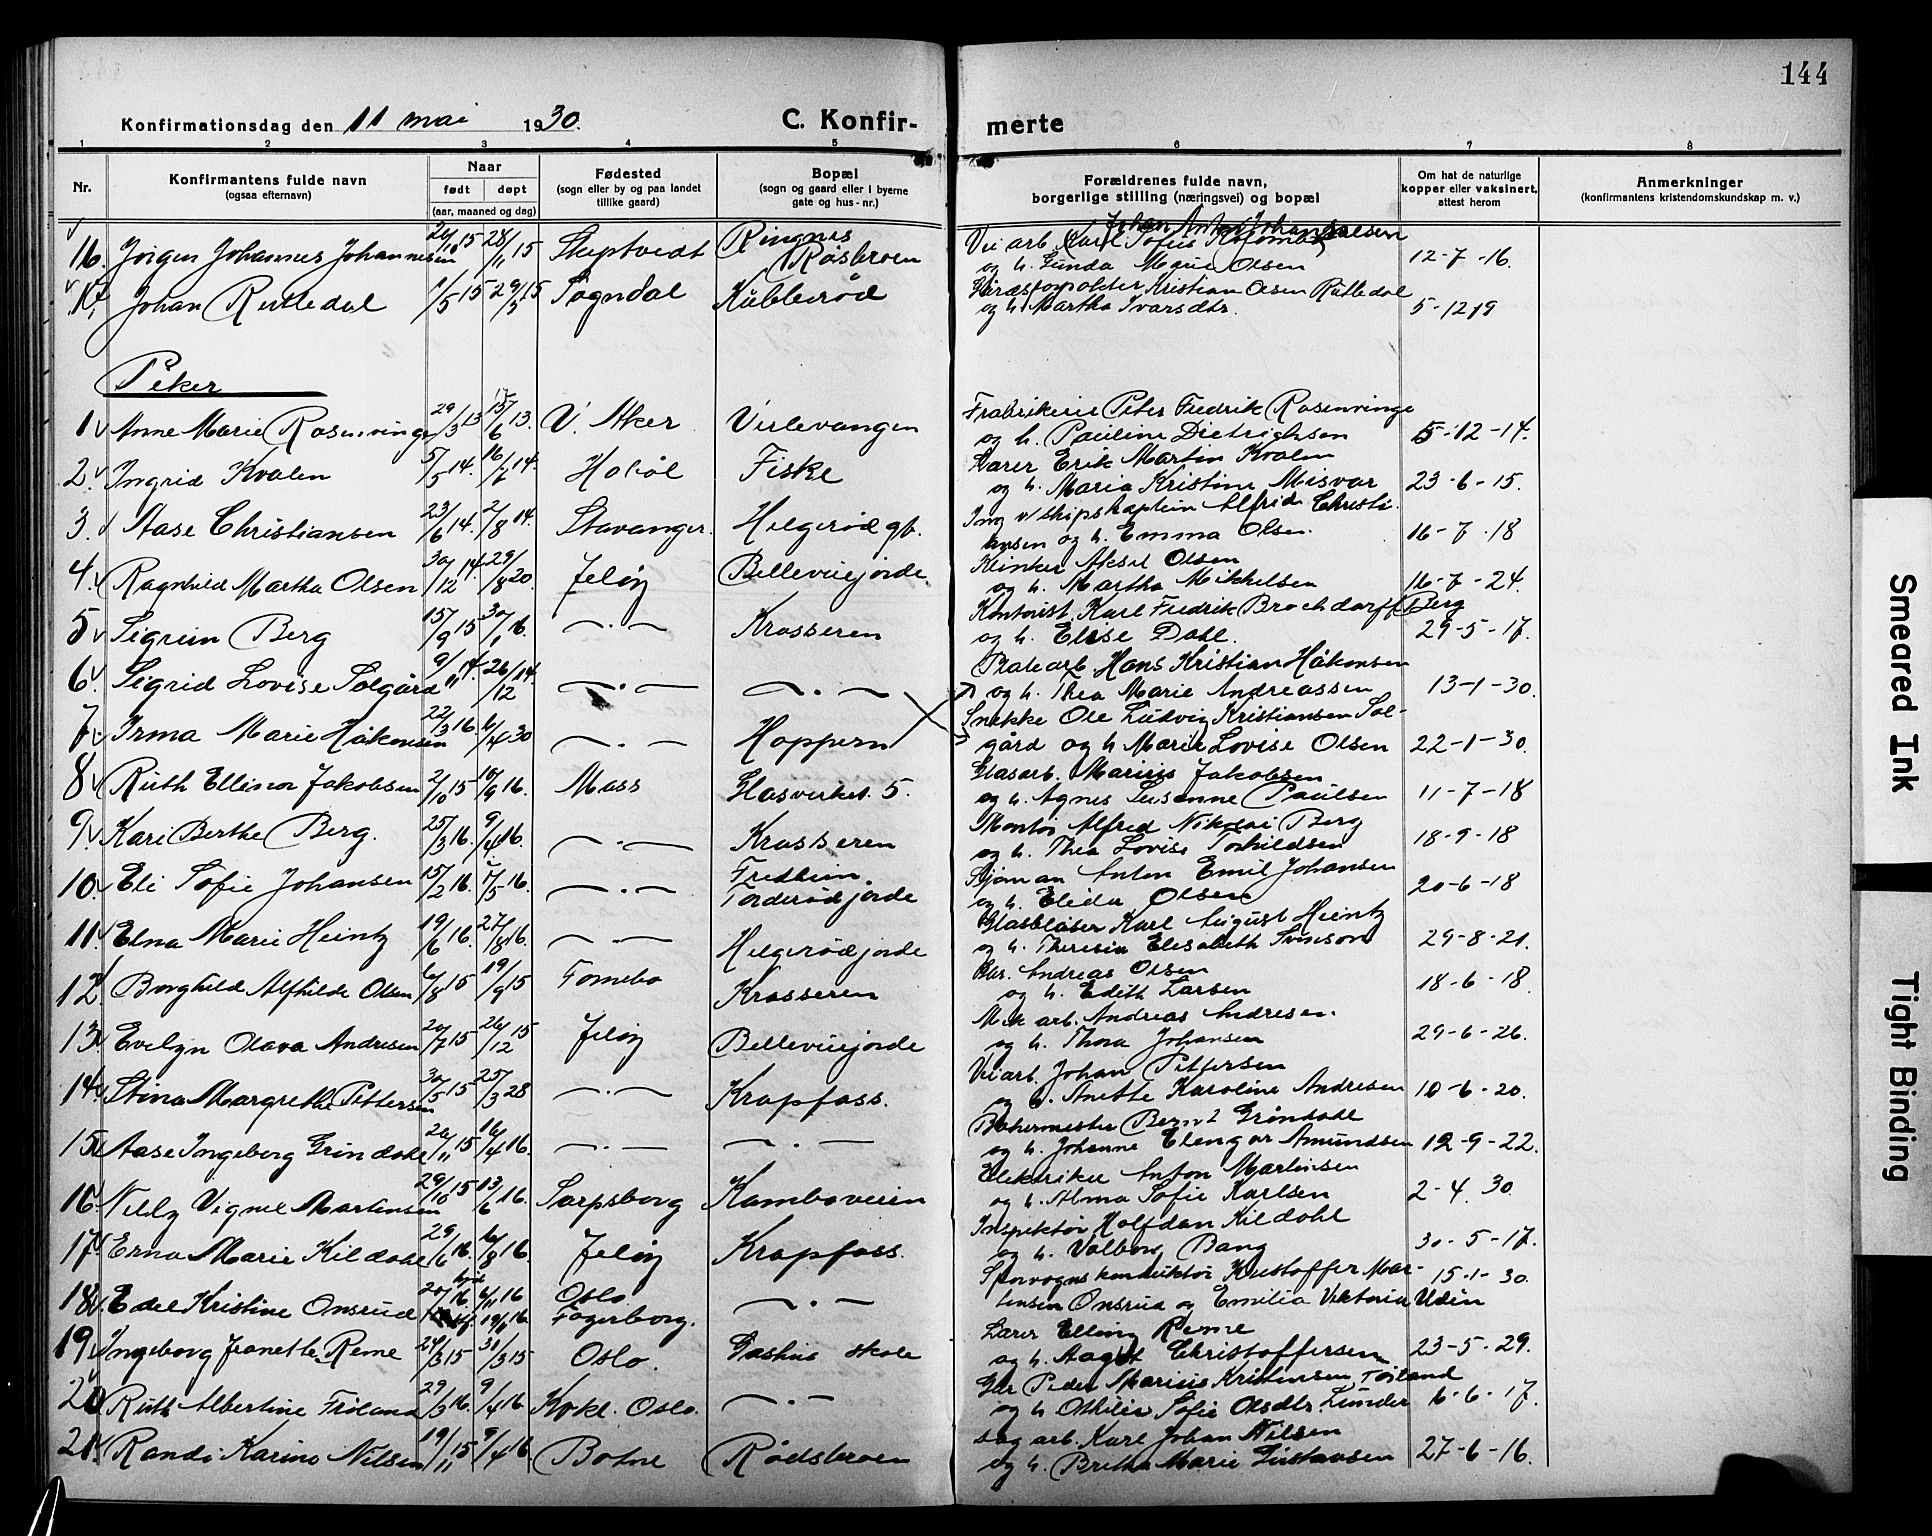 144
Konfirmationsdag den 11 mai 1930.
C. Konfir-
merte
1 2 3 4 5 6 7 8
Nr.
Konfirmantens fulde navn
(ogsaa efternavn)
Naar
født døpt
(aar, maaned og dag)
Fødested
(sogn eller by og paa landet
tillike gaard)
Bopæl
(sogn og gaard eller i byerne
gate og hus-nr.)
Forældrenes fulde navn,
borgerlige stilling (næringsvei) og bopæl
Om hat de naturlige
kopper eller vaksinert,
attest herom
Anmerkninger
(konfirmantens kristendomskundskap m. v.)
16. Jørgen Johannes Johannesen 28/11 15 Skeptvedt Ringnes Røsbroen Vei arb. Johan Anton Johannesen
og h. Gunda Marie Olsen 12-7-16.
17. Johan Rutledal 1/5 15 29/5 15 Sogndal Kubberød Kristian Olsen Rutledal
og h. Martha Ivarsdtr. 5-12 19
Piker
1 Anne Marie Rosenvinge 29/3 13 15/6 13. V. Aker Verlevangen Fabrikeier Peter Fredrik Rosenvinge
og h. Pauline Dietrichsen 5-12-14.
2. Ingrid Kvalen 5/5 14. 16/7 14. Hobøl Fiske Lærer Erik Martin Kvalen
og h. Maria Kristine Misvær 23-6-15.
3. Aase Christiansen 23/6 14. 2/8 14. Stavanger. Helgerød gt. Ing v/ skipskaptein Alfrid Christi-
ansen og h. Emma Olsen. 16-7-18
4. Ragnhild Martha Olsen 30/12 14. 29/8 20. Jeløy Bellevuejorde Klinker Aksel Olsen
og h. Martha Mikkelsen 16-7-24.
5 Sigrun Berg 15/9 15 30/1 16. —·— Krosseren Kontorist Karl Fredrik Brochdorff Berg
og h. Elise Dahl. 29-5-17.
6. Sigrid Lovise Solgård 9/11 14. 26/12 14. —·— —·— Hans Kristian Håkonsen
og h. Thea Marie Andreassen 13-1-30.
7. Irma Marie Håkonsen 22/3 16. 6/4 30 —·— Hoppern Snekke Ole Ludvig Kristiansen Sol-
gård og h Marie Lovise Olsen 22-1-30.
8 Ruth Ellinor Jakobsen 2/10 15 10/9 16. Moss Glasverket. 5. Glasarb. Marius Jakobsen
og h. Agnes Susanne Paulsen 11-7-18
9. Kari Berthe Berg. 25/3 16. 9/4 16. —·— Krosseren Montør Alfred Nikolai Berg
og h. Thea Lovise Torkildsen 18-9-18
10. Eli Sofie Johansen 15/2 16. 7/5 16. —·— Fredheim. Torderødjorde Sjøman Anton Emil Johansen
og h. Elida Olsen 20-6-18
11. Elna Marie Heintz 19/6 16. 27/8 16. —·— Helgerødjorde Glasblåser Karl August Heintz
og h. Theresia Elisabeth Svenson 29-8-21.
12. Borghild Alfhilde Olsen 6/8 15 19/9 15 Fornebo Krosseren Andreas Olsen
og h. Edith Larsen 18-6-18.
13. Evelyn Olava Andresen 20/7 15 26/12 15 Jeløy Bellevuejorde Mek arb. Andreas Andresen.
og h. Thora Johansen 29-6-26.
14. Stina Margrethe Pettersen 30/5 15 25/3 28 —·— Krapfoss. Veiarb. Johan Pettersen
og h. Anette Karoline Andresen 10-6-20.
15. Aase Ingeborg Grindahl 26/11 15 16/4 16. —·— —·— Bernt Grindahl
og h. Johanne Elengar Amundsen 12-9-22.
16. Nelly Vignel Martinsen 29/10 15 13/6 16. Sarpsborg Kamboveien Elektriker Anton Martinsen
og h. Alma Sofie Karlsen 2-4 30
17. Erna Marie Kildahl 29/6 16. 6/8 16. Jeløy Krapfoss. Inspektør Halfdan Kildahl
og h. Valborg Bang 30-5-17.
18. Edel Kristine Onsrud 16 Oslo Fagerborg. —·— Sporvognskonduktør Kristoffer Mar-
tensen Onsrud og Emilia Viktoria Udin 15-1-30.
19. Ingeborg Jeanette Reme 24/3 15 31/3 15 Oslo. skole Lærer Elling Reme
og h. Aagot Christoffersen 23-5-29.
20 Ruth Albertine Frøland 29/3 16. 9/4 16 Oslo. —·— Peder Marius Kristensen Frøland
og h Othilie Sofie Olsdtr. Lunder 6-6-17.
21. Randi Karine Nilsen 19/11 15 9/4 16 Botne Rødsbroen Sag arb. Karl Johan Nilsen
og h. Britha Marie Gustavsen 27-6-16.
Smeared Ink
Tight Binding